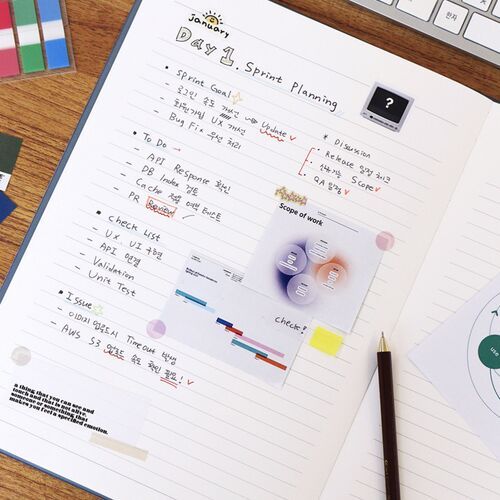 january
Day 1. Sprint Planning
• Sprint Goal
- 로그인 속도 개선 → Update ✓
- 회원가입 UX 개선
- Bug Fix 우선 처리
• To Do →
- API Response 확인
- DB Index 검토
- Cache 적용 여부 테스트
- PR Review
• Check List
- UX. UI 구현
- API 연결
- Validation
- Unit Test
• Issue
- 이미지 업로드시 Timeout 발생
- AWS S3 업로드 속도 확인 필요! ✓
?
* Discussion
Release 일정 체크
Scope ✓
QA 일정 ✓
Scope of work
check!
a thing that you can see and
touch and that is not alive.
someone or something that
makes you feel a specified emotion.
한자